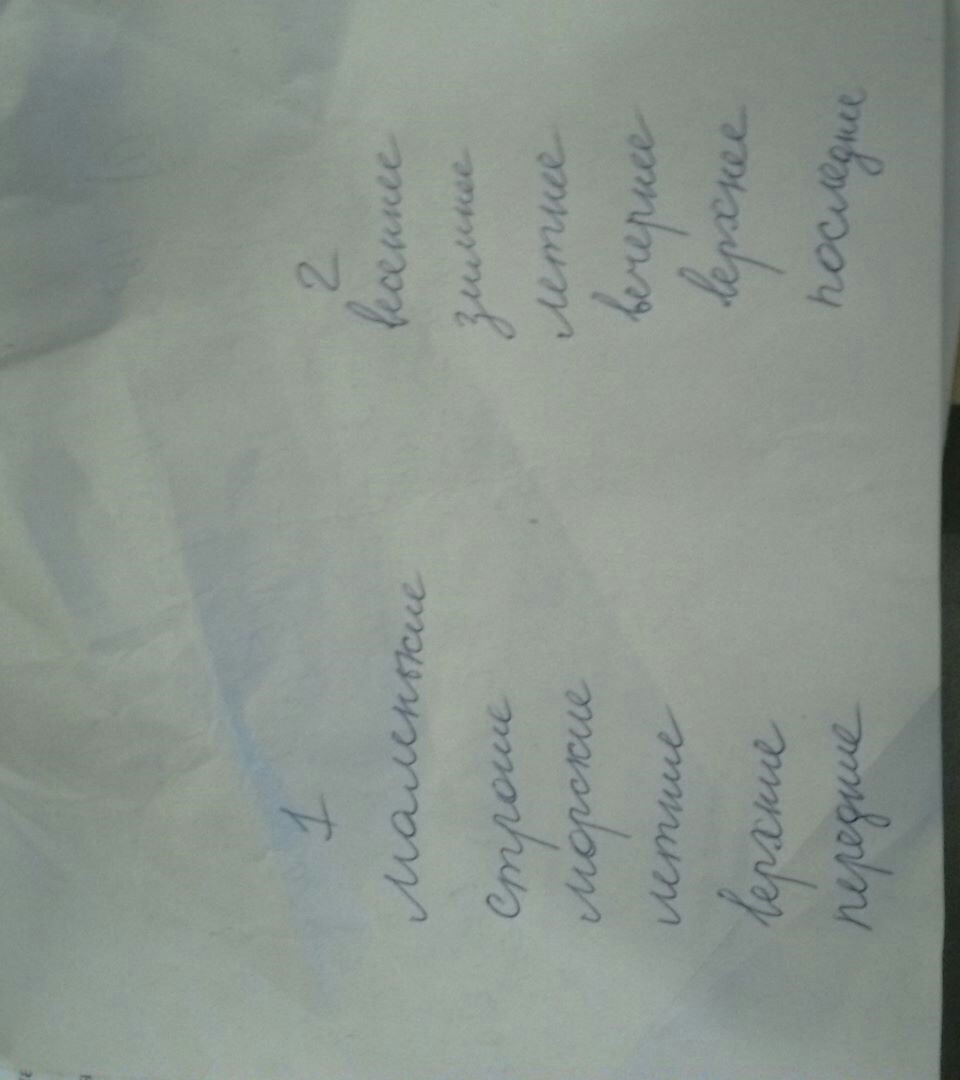 1
маленькие
строгие
морские
летние
верхние
передние
2
весеннее
зимнее
летнее
вечернее
верхнее